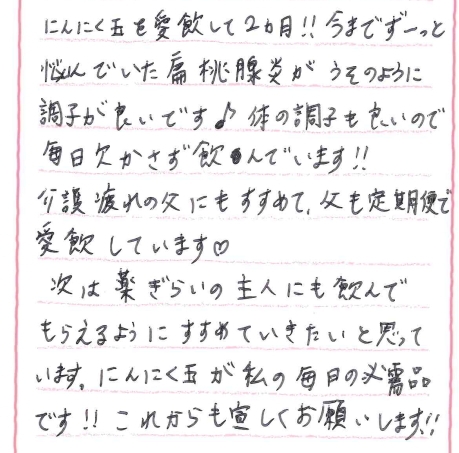 にんにく玉を愛飲して2ヵ月!!今までずーっと
悩んでいた扁桃腺炎がうそのように
調子が良いです♪体の調子も良いので
毎日欠かさず飲んでいます!!
介護疲れの父にもすすめて、父も定期便で
愛飲しています♡
次は薬ぎらいの主人にも飲んで
もらえるようにすすめていきたいと思って
います。にんにく玉が私の毎日の必需品
です!!これからも宜しくお願いします!!